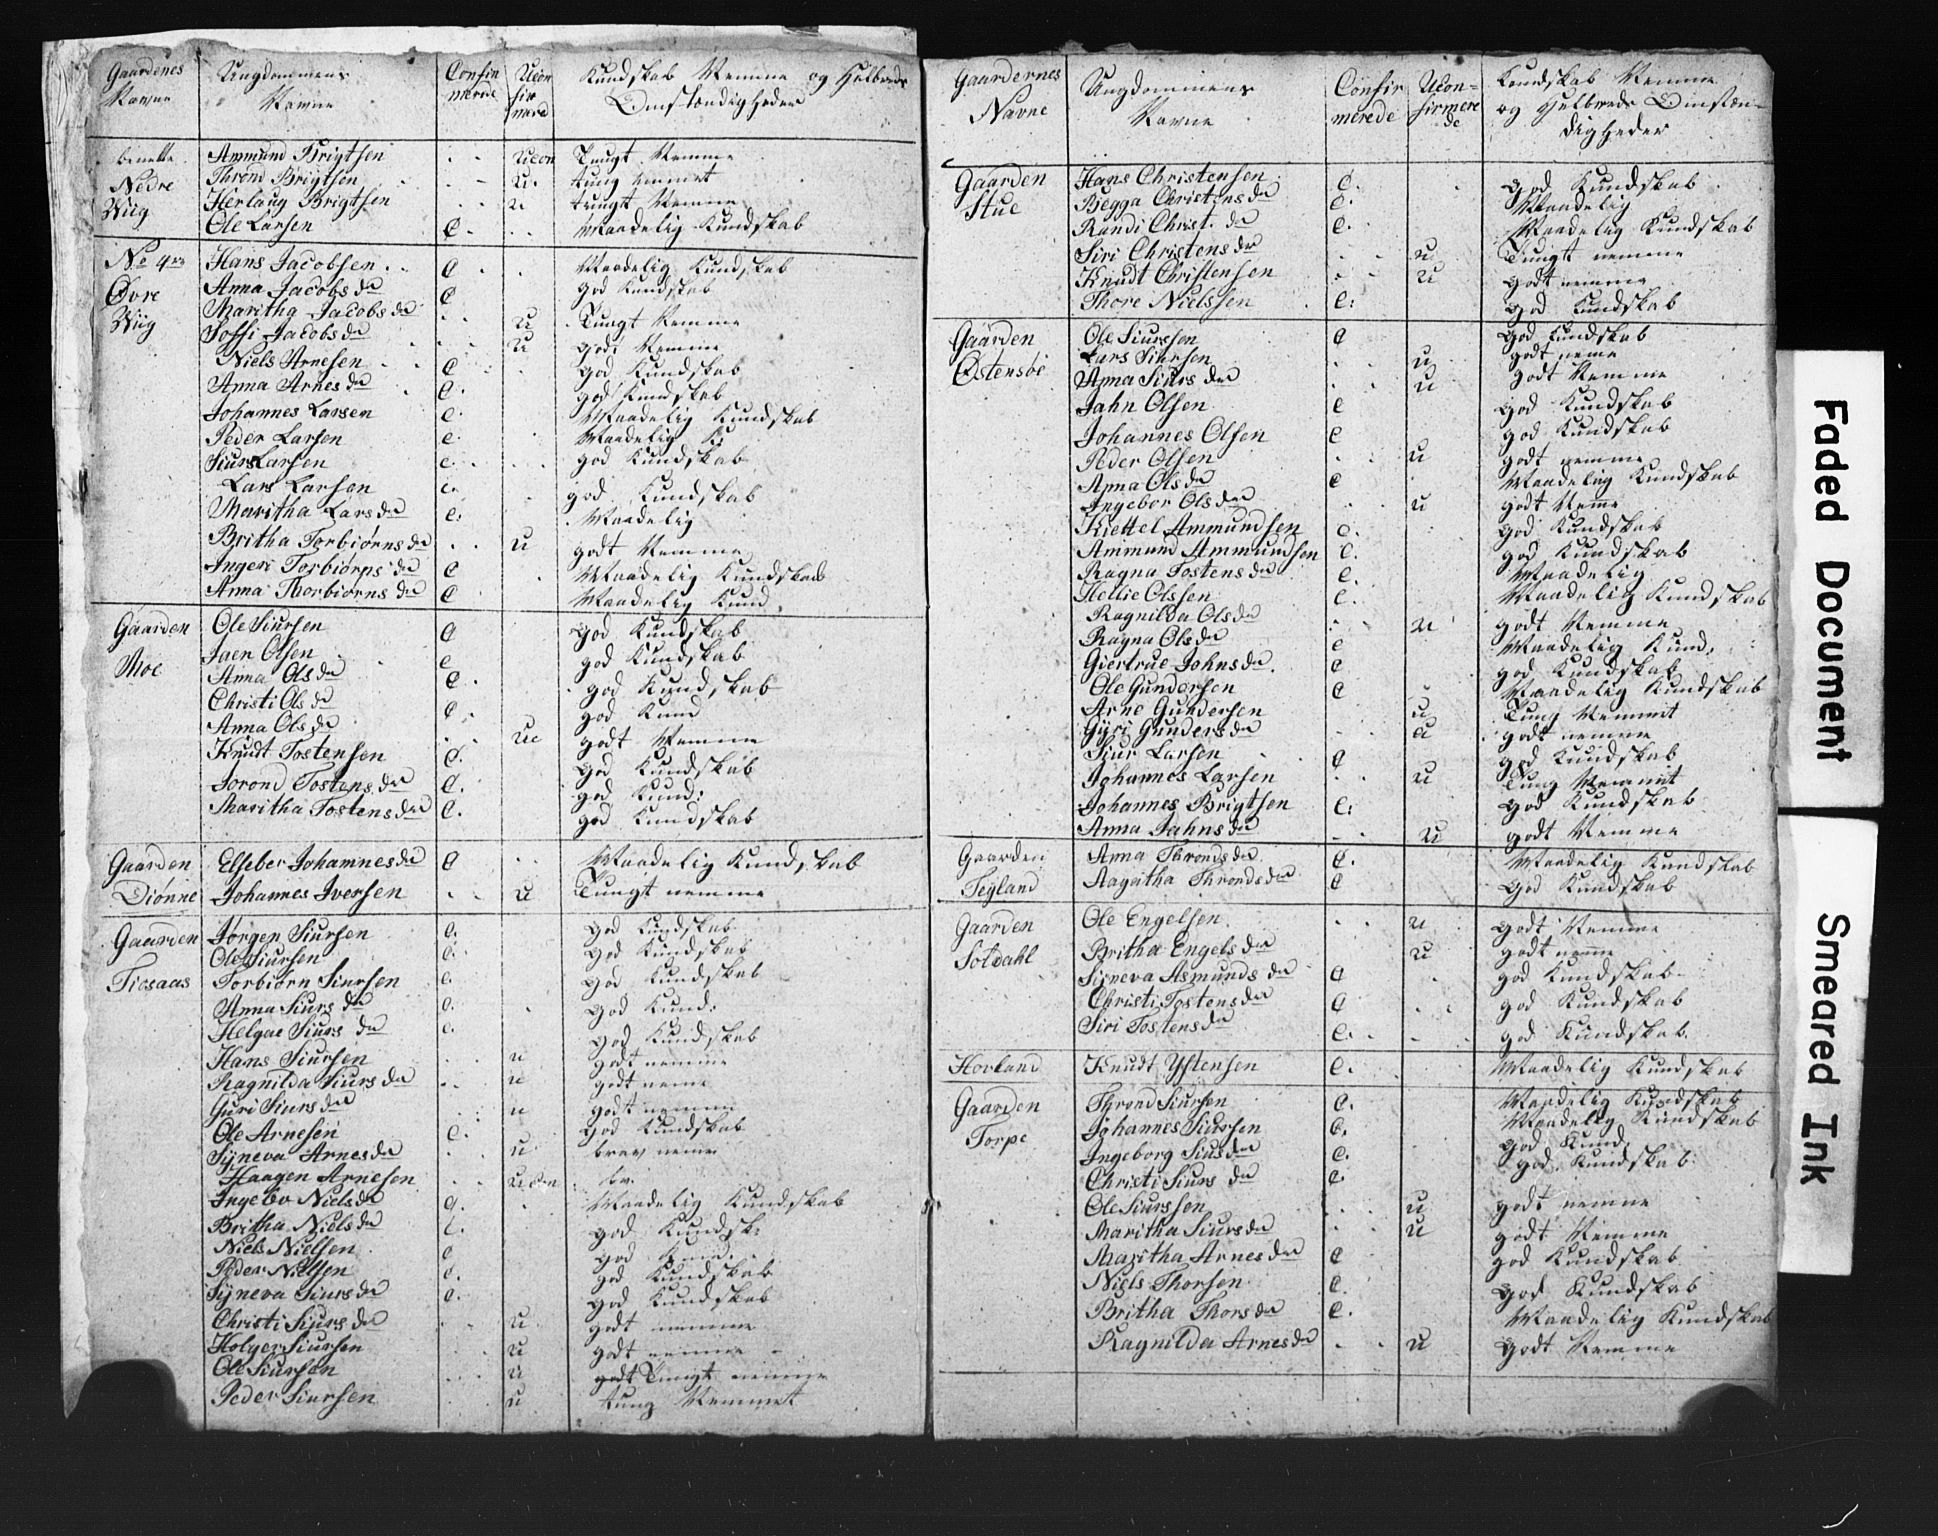 Gaardenes Navne | Ungdommens Navne | Confirmerde | Uconfirmerd | Kundskab Nemme og Helbreds Omstændigheder
benette | Ammund Brigtsen | . . | Ucon | Tungt Nemme
Nedre | Thrond Brigtsen | . - | U. | tung nemmet
Wiig | Herlaug Brigtsen | . . | u | tungt Nemme
Ole Larsen | C. | . . | Maadelig Kundskab
No 4re | Hans Jacobsen | C | . | Maadelig Kundskab
Øvre | Anna Jacobs da | C | god Kundskab
Wiig | Maritha Jacobs da | . . | u | Tungt Nemme
Soffi Jacobs da | . . | u | god Nemme
Niels Arnesen | C | god Kundskab
Anna Arnes da | C. | god Kundskab
Johannes Larsen | C. | Maadelig Kundskab
Peder Larsen | C. | Maadelig K:
Siurs Larsen | C. | . . | god Kundskab
Lars Larsen | C. | god Kundskab
Maritha Lars da | C. | Maadelig
Britha Torbiørns da | . . | u | godt Nemme
Ingeri Torbiørns da | C | . | Maadelig Kundskab
Anna Thorbiørns da | C | Maadelig Kund.
Gaarden | Ole Siursen | C | god Kundskab
Moe | Jaen Olsen | C | god Kundskab
Anna Ols da | C. | god Kundskab
Christi Ols da | C. | god Kund
Anna Ols da | . . | Uc | godt Nemme
Knudt Tostensen | C. | god Kundskab
Torond Tostens da | C. | god Kund:
Maritha Tostens da | C. | god Kundskab
Gaarden | Elseber Johannes da | C | . . | Maadelig Kundskab
Diønne | Johannes Iversen | . . | U | Tungt nemme
Gaarden | Jørgen Siursen | C. | god Kundskab
Ole Siursen | C. | god Kundskab
Tiosaas | Torbiørn Siursen | C. | god Kundskab
Anna Siurs da | C. | . | god Kund:
Helgae Siurs da | C. | god Kundskab
Hans Siursen | . . | u | godt nemme
Ragnilda Siurs da | . . | u | godt neme
Guri Siurs da | . . | u | godt nemme
Ole Arnesen | C. | god Kundskab
Syneva Arnes da | . . | u | brav nemme
Haagen Arnesen | . . | Ucon | br.
Ingebor Niels da | C. | . | Maadelig Kundskab
Britha Niels da | C. | god Kundsk:
Niels Nielsen | C | god Kund.
Peder Nielsen | C. | god Kundskab
Syneva Siurs da | C. | god Kundskab
Christi Siurs da | . . | u | godt nemme
Holger Siursen | . . | u | godt nemme
Ole Siursen | . . | u | godt Tungt nemme
Peder Siursen | . . | u | tung Nemmet
Gaardernes Navne | Ungdommens Navne | Confirmerede | Uconfirmerede | Kundskab Nemme og Helbreds Omstændigheder
Gaarden | Hans Christensen | C. | . . | god Kundskab
Stue | Begga Christens da | C. | Maadelig
Randi Christ. da | C. | Maadelig Kundskab
Siri Christens da | . . | u | Tungt nemme
Knudt Christensen | . . | u | godt nemme
Thore Nielssen | C: | god Kundskab
Gaarden | Ole Siurssen | C | god Kundskab
Østensbe | Lars Siursen | . . | u | godt neme
Anna Siurs da | . . | u | godt Nemme
Jahn Olsen | C | god Kundskab
Johannes Olsen | C | god Kundskab
Peder Olsen | . . | u | godt nemme
Anna Ols da | C | . | Maadelig Kundskab
Ingebor Ols da | . . | u | godt Nemme
Kiettel Ammundsen | C. | god Kundskab
Ammund Ammundsen | C. | god Kundskab
Ragna Tostens da | C. | Maadelig
Hellie Olssen | C. | Maadelig Kundskab
Ragnilda Ols da | . . | u | godt Nemme
Ragna Ols da | C | Maadelig Kund.
Giertrue Johns da | C | god Kundskab
Ole Gundersen | C | Maadelig Kundskab
Arne Gundersen | u | Tung Nemmet
Gyri Gunders da | . . | u | godt nemme
Siur Larsen | C | god Kundskab
Johannes Larsen | . . | u | Tung Nemmet
Johannes Brigtsen | C. | god Kundskab
Anna Jahns da | . . | u | godt Nemme
Gaarden | Anna Thronds da | C. | Maadelig Kundskab
Tegland | Aagatha Thronds da | C | god Kundskab
Gaarden | Ole Engelsen | . . | u | godt Nemme
Solvahl | Britha Engels da | u | godt nemme
Sirneva Asmunds da | C | god Kundskab
Christi Tostens da | C | . . | god Kundskab
Siri Tostens da | C. | . . | god Kundskab.
Hovland | Knudt Ystensen | C. | Maadelig Kundskab
Gaarden | Thrond Siursen | C. | Maadelig Kundskab
Torpe | Johannes Siursen | C. | Maadelig Kundskab
Ingeborg Siurs da | C. | god Kund.
Christi Siurs da | C. | god Kundskab
Ole Siurssen | . . | u | godt nemme
Maritha Siurs da | . . | u | godt Nemme
Maritha Arnes da | C | god Kundskab
Niels Thorsen | C. | god Kundskab
Britha Thors da | C. | Maadelig Kundskab
Ragnilda Arnes da | . . | u | godt Nemme
Faded Document
Smeared Ink